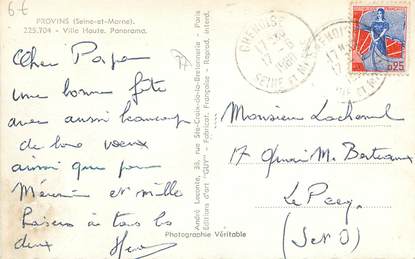 6€
PROVINS (Seine-et-Marne).
225.704 - Ville Haute. Panorama.
Cher Papa
une bonne fête
avec aussi beaucoup
de bons voeux
ainsi que pour
Mémé et mille
baisers à tous les
deux
André Leconte, 38, rue Ste-Croix-de-la-Bretonnerie - Paris
Editions d'art "GUY" - Fabricat. Française - Reprod. interd.
Photographie Véritable
CHENOISE
SEINE et M
0,25
Monsieur
17 Quai M. Berteaux
Le Pecq
(S et O)